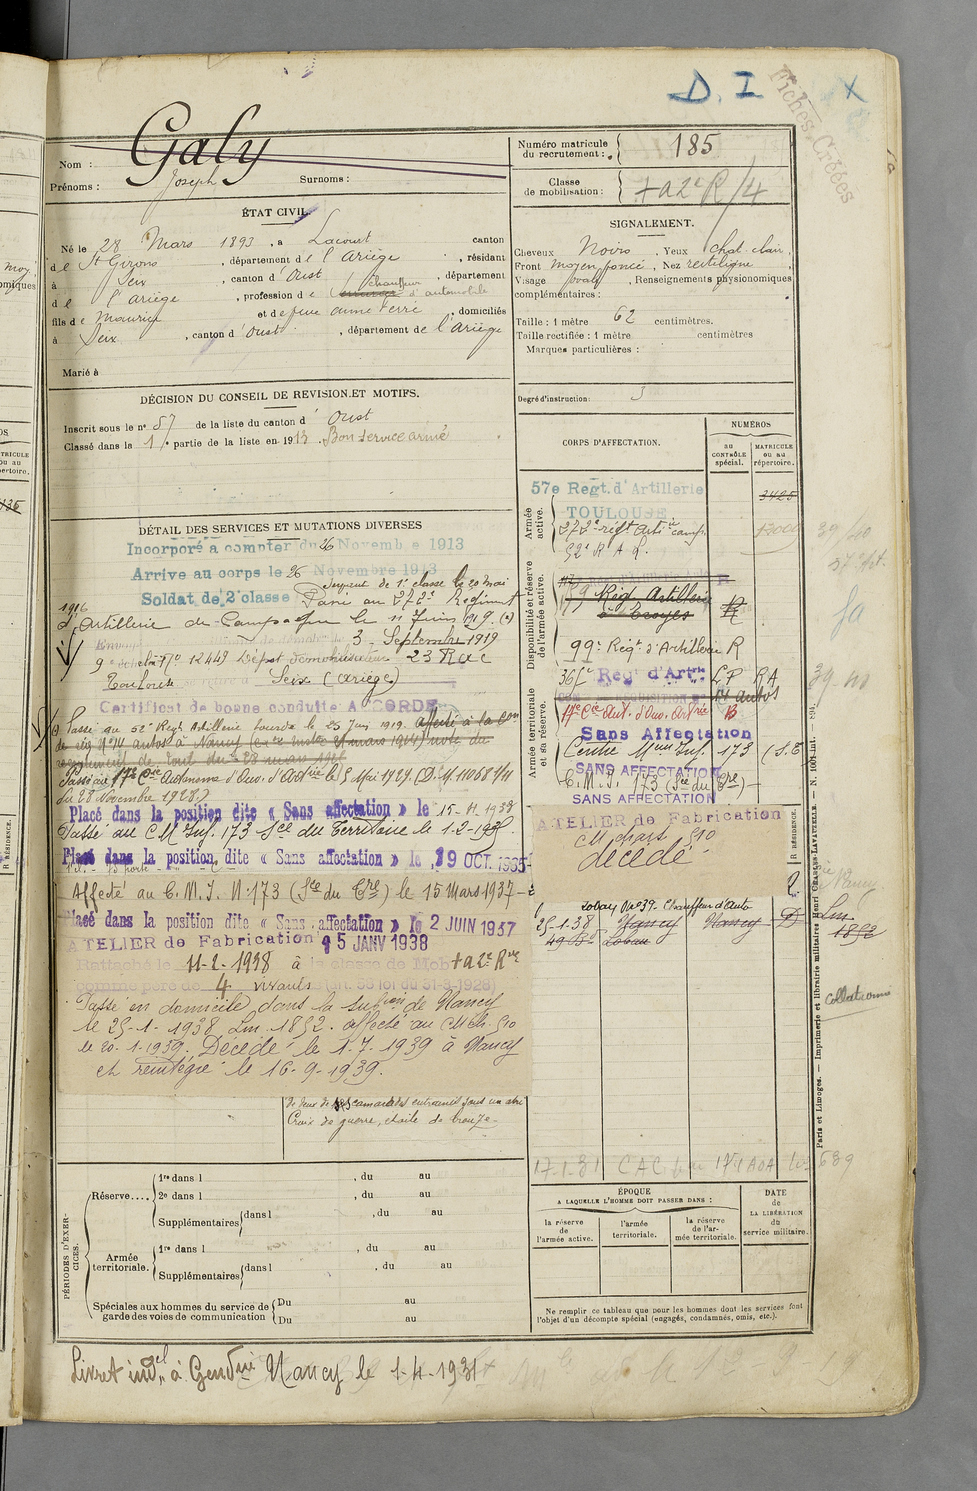 D. I
X
Fiches Créées
Nom :
Galy
Prénoms :
Joseph
Surnoms :
Numéro matricule
du recrutement :
185
Classe
de mobilisation :
+ a 2e R/4
ÉTAT CIVIL.
Né le 28 Mars 1893, à Lacourt canton
de St Girons, département de l'Ariège, résidant
à Seix, canton d'Oust, département
de l'Ariège, profession de chauffeur d'automobile
fils de Maurice et de feue anne Ferré, domiciliés
à Seix, canton d'Oust, département de l'Ariège
Marié à
SIGNALEMENT.
Cheveux Noirs, Yeux chat. clair,
Front moyen foncé, Nez rectiligne,
Visage ovale, Renseignements physionomiques
complémentaires :
Taille : 1 mètre 62 centimètres.
Taille rectifiée : 1 mètre centimètres
Marques particulières :
Degré d'instruction : 3
DÉCISION DU CONSEIL DE REVISION ET MOTIFS.
Inscrit sous le n° 57 de la liste du canton d'Oust
Classé dans la 1re partie de la liste en 1913. Bon service armé
DÉTAIL DES SERVICES ET MUTATIONS DIVERSES
Incorporé à compter du 26 Novembre 1913
Arrivé au corps le 26 Novembre 1913
Soldat de 2e classe
Servant de 1e classe le 20 mai
1916
Passé au 272e Régiment
d'Artillerie de Campagne le 11 Juin 1919. (a)
3 Septembre 1919
9e échelon No 12449 Dépôt démobilisateur 23 Rac
Toulouse Seix (Ariège)
Certificat de bonne conduite ACCORDE
(a) Passé au 52e Régt Artillerie Lourde le 25 Juin 1919. affecté à la Con
de rég No 14 autos à Nancy
Passé au 17e Cie Autonome d'Ouv. d'Artrie le 5 Mai 1929. (D.M. 11068 1/11
du 28 Novembre 1928.)
Placé dans la position dite « Sans affectation » le 15-11-1933
Passé au C M Inf. 173 Sce du Territoire le 1-2-1935.
Placé dans la position dite « Sans affectation » le 19 OCT. 1935
Affecté au C. M. I. N° 173 (Sce du Cre) le 15 Mars 1937
Placé dans la position dite « Sans affectation » le 2 JUIN 1937
ATELIER de Fabrication 15 JANV 1938
Rattaché le 11-2-1938 à la classe de Mob + a 2e Rve
comme père de 4 vivants (art. 58 loi du 31-3-1928)
Passé en domicile dans la subion de Nancy
le 25-1-1938 Lm. 1852. affecté au CM Ch. 510
le 20-1-1939. Décédé le 1-7-1939 à Nancy
et réintégré le 16-9-1939.
de deux de ses camarades
Croix de guerre, étoile de bronze
CORPS D'AFFECTATION.
NUMÉROS
au
CONTRÔLE
spécial.
MATRICULE
ou au
répertoire.
Armée
active.
57e Regt. d'Artillerie
TOULOUSE
3425
272e régt Artie camp.
52e R A L.
Disponibilité et réserve
de l'armée active.
Rég. Artillerie
à Troyes
99e Régt d'Artillerie R
Armée territoriale
et sa réserve.
Reg d'Artie LP RA
14 autos
17e Cie Aut. d'Ouv. Artrie B
Sans Affectation
Centre Mon Inf. 173
SANS AFFECTATION
C. M. I. 173 (Sce du Cre)
SANS AFFECTATION
ATELIER de Fabrication
CM chars 510
décédé
Lobau No 39. Chauffeur d'Auto
25-1-38 Nancy Nancy D Lm
1852
Lobau
collationné
17-1-31 CAC
689
ÉPOQUE
A LAQUELLE L'HOMME DOIT PASSER DANS :
la réserve
de l'armée active.
l'armée
territoriale.
la réserve
de l'armée territoriale.
DATE
de
LA LIBÉRATION
du
service militaire.
Ne remplir ce tableau que pour les hommes dont les services font
l'objet d'un décompte spécial (engagés, condamnés, omis, etc.).
PÉRIODES D'EXERCICES.
Réserve....
1re dans l , du au
2e dans l , du au
Supplémentaires dans l , du au
Armée
territoriale.
1re dans l , du au
Supplémentaires dans l , du au
Spéciales aux hommes du service de
garde des voies de communication
Du au
Du au
Paris et Limoges. — Imprimerie et librairie militaires Henri CHARLES-LAVAUZELLE.
Livret indel à Gendrie Nancy le 1-4-1931